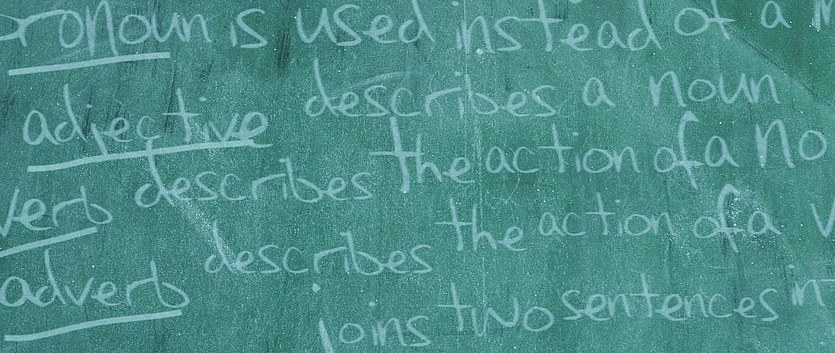 pronoun is used instead of a
adjective describes a noun
verb describes the action of a no
adverb describes the action of a v
joins two sentences